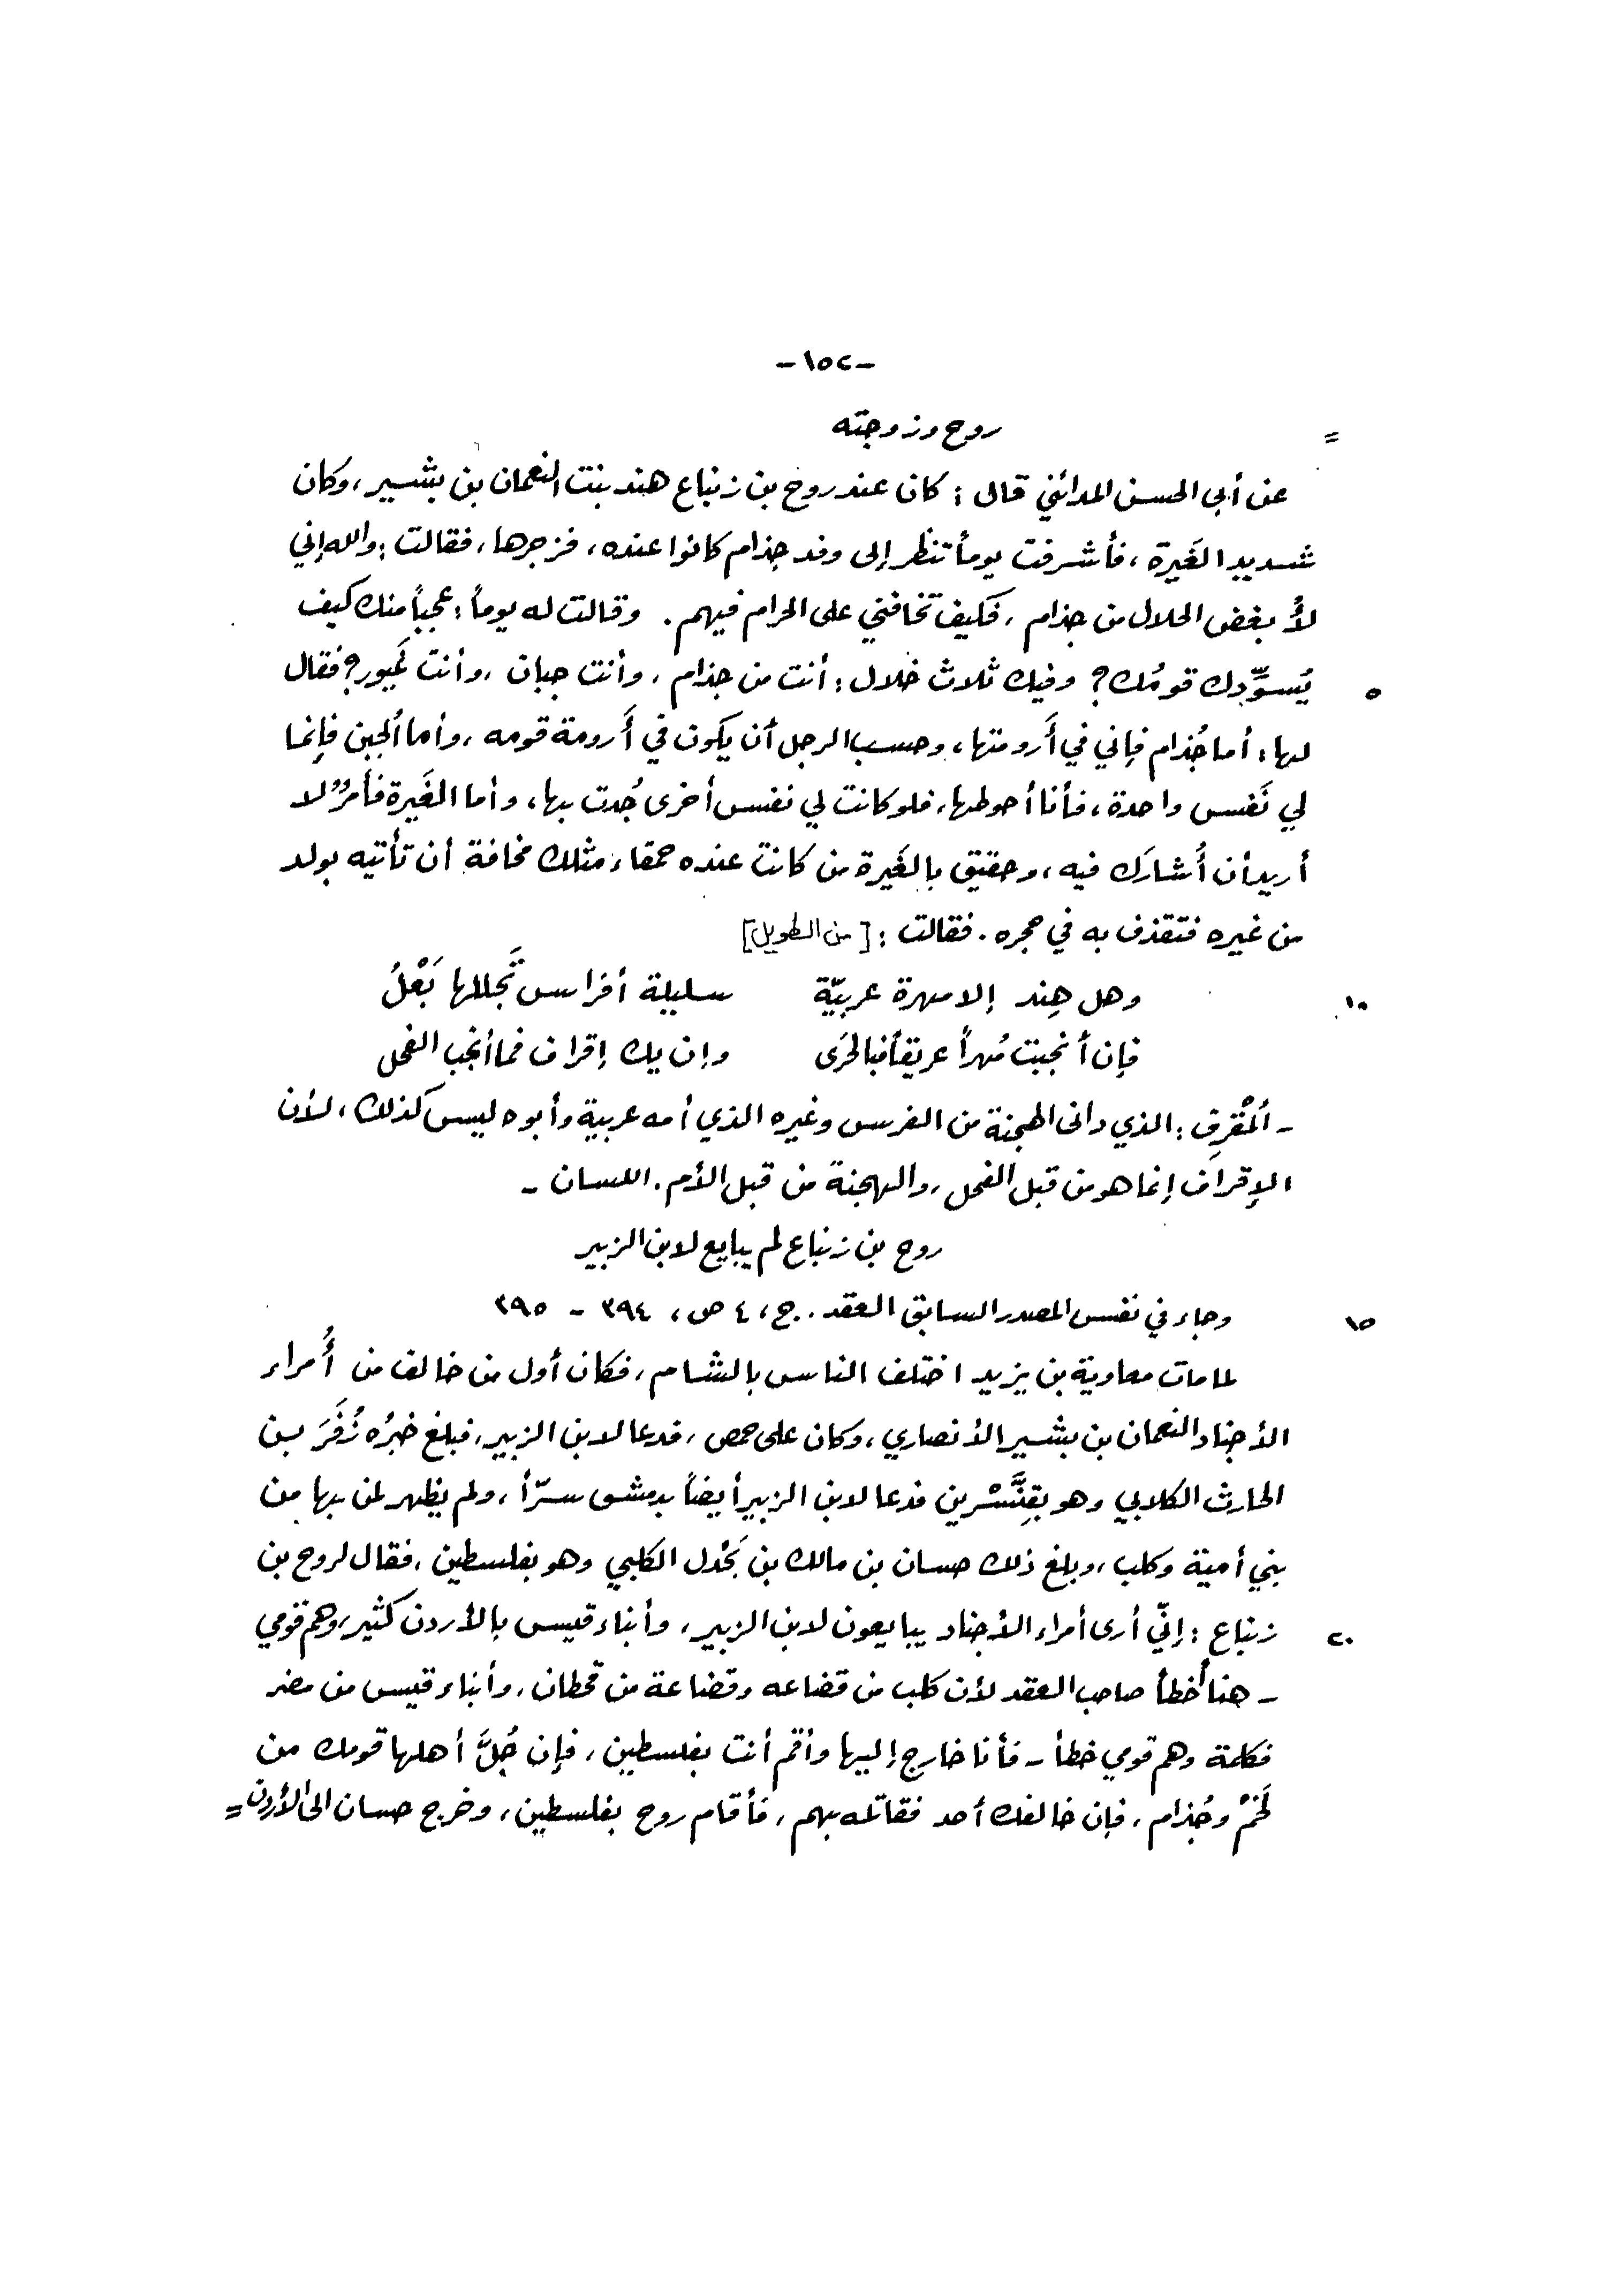 -١٥٢-
= روح وزوجته
عن أبي الحسن المدائني قال : كان عند روح بن زنباع هند بنت النعمان بن بشير ، وكان
شديد الغَيرة ، فأشرفت يوماً تنظر إلى وفد جذام كانوا عنده ، فزجرها ، فقالت : والله إني
لأُبغض الحلال من جذام ، فكيف تخافني على الحرام فيهم . وقالت له يوماً : عجباً منك كيف
٥ يُسوِّدك قومُك ؟ وفيك ثلاث خلال : أنت من جذام ، وأنت جبان ، وأنت غَيور ؟ فقال
لها : أما جُذام فإني في أَرومتها ، وحسب الرجل أن يكون في أَرومة قومه ، وأما الجبن فإنما
لي نَفس واحدة ، فأنا أحوطها ، فلو كانت لي نفس أخرى جُدت بها ، وأما الغَيرة فأمرٌ لا
أريد أن أُشارَك فيه ، وحقيق بالغَيرة من كانت عنده حمقاء مثلك مخافة أن تأتيه بولد
من غيره فتقذف به في حجره . فقالت : [من الطويل]
١٠ وهل هِند إلا مهرة عربيّة سليلة أفراس تَجللها بَعْلُ
فإن أنجبت مُهراً عريقاً فبالحَرَى وإن يك إقراف فما أنجب الفحل
- اَلْمُقرِف : الذي دانى الهجنة من الفرس وغيره الذي أمه عربية وأبوه ليس كذلك ، لأن
الإقراف إنما هو من قبل الفحل ، والهجنة من قبل الأم . اللسان -
روح بن زنباع لم يبايع لابن الزبير
١٥ وجاء في نفس المصدر السابق العقد . ج ، ٤ ص ، ٣٩٤ - ٣٩٥
لما مات معاوية بن يزيد اختلف الناس بالشام ، فكان أول من خالف من أُمراء
الأجناد النعمان بن بشير الأنصاري ، وكان على حمص ، فدعا لابن الزبير ، فبلغ خبرُه زُفَرَ بن
الحارث الكلابي وهو بقِنَّسْرين فدعا لابن الزبير أيضاً بدمشق سرّاً ، ولم يظهر لمن بها من
بني أمية وكلب ، وبلغ ذلك حسان بن مالك بن بَحْدل الكلبي وهو بفلسطين ، فقال لروح بن
٢٠ زنباع : إنّي أرى أمراء الأجناد يبايعون لابن الزبير ، وأبناء قيس بالأردن كثير ، وهم قومي
- هنا أخطأ صاحب العقد لأن كلب من قضاعه وقضاعة من قحطان ، وأبناء قيس من مضر
فكلمة وهم قومي خطأ - فأنا خارج إليها وأقم أنت بفلسطين ، فإن جُلَّ أهلها قومك من
لَخْمٌ وجُذام ، فإن خالفك أحد فقاتله بهم ، فأقام روح بفلسطين ، وخرج حسان الى الأردن =